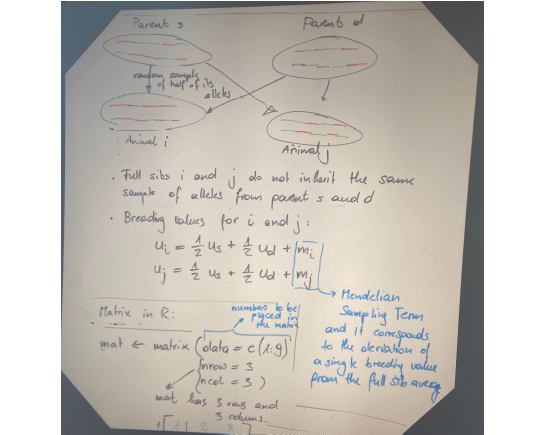 Parent s
Parent d
random sample
of half of its
alleles
Animal i
Animal j
• Full sibs i and j do not inherit the same
sample of alleles from parent s and d
• Breeding values for i and j:
u_i = 1/2 u_s + 1/2 u_d + m_i
u_j = 1/2 u_s + 1/2 u_d + m_j
→ Mendelian
Sampling Term
and it corresponds
to the deviation of
a single breeding value
from the full sib average
Matrix in R:
numbers to be
placed in
the matrix
mat ← matrix (data = c(1:9)
nrow = 3
ncol = 3 )
mat has 3 rows and
3 colums
1 2 3